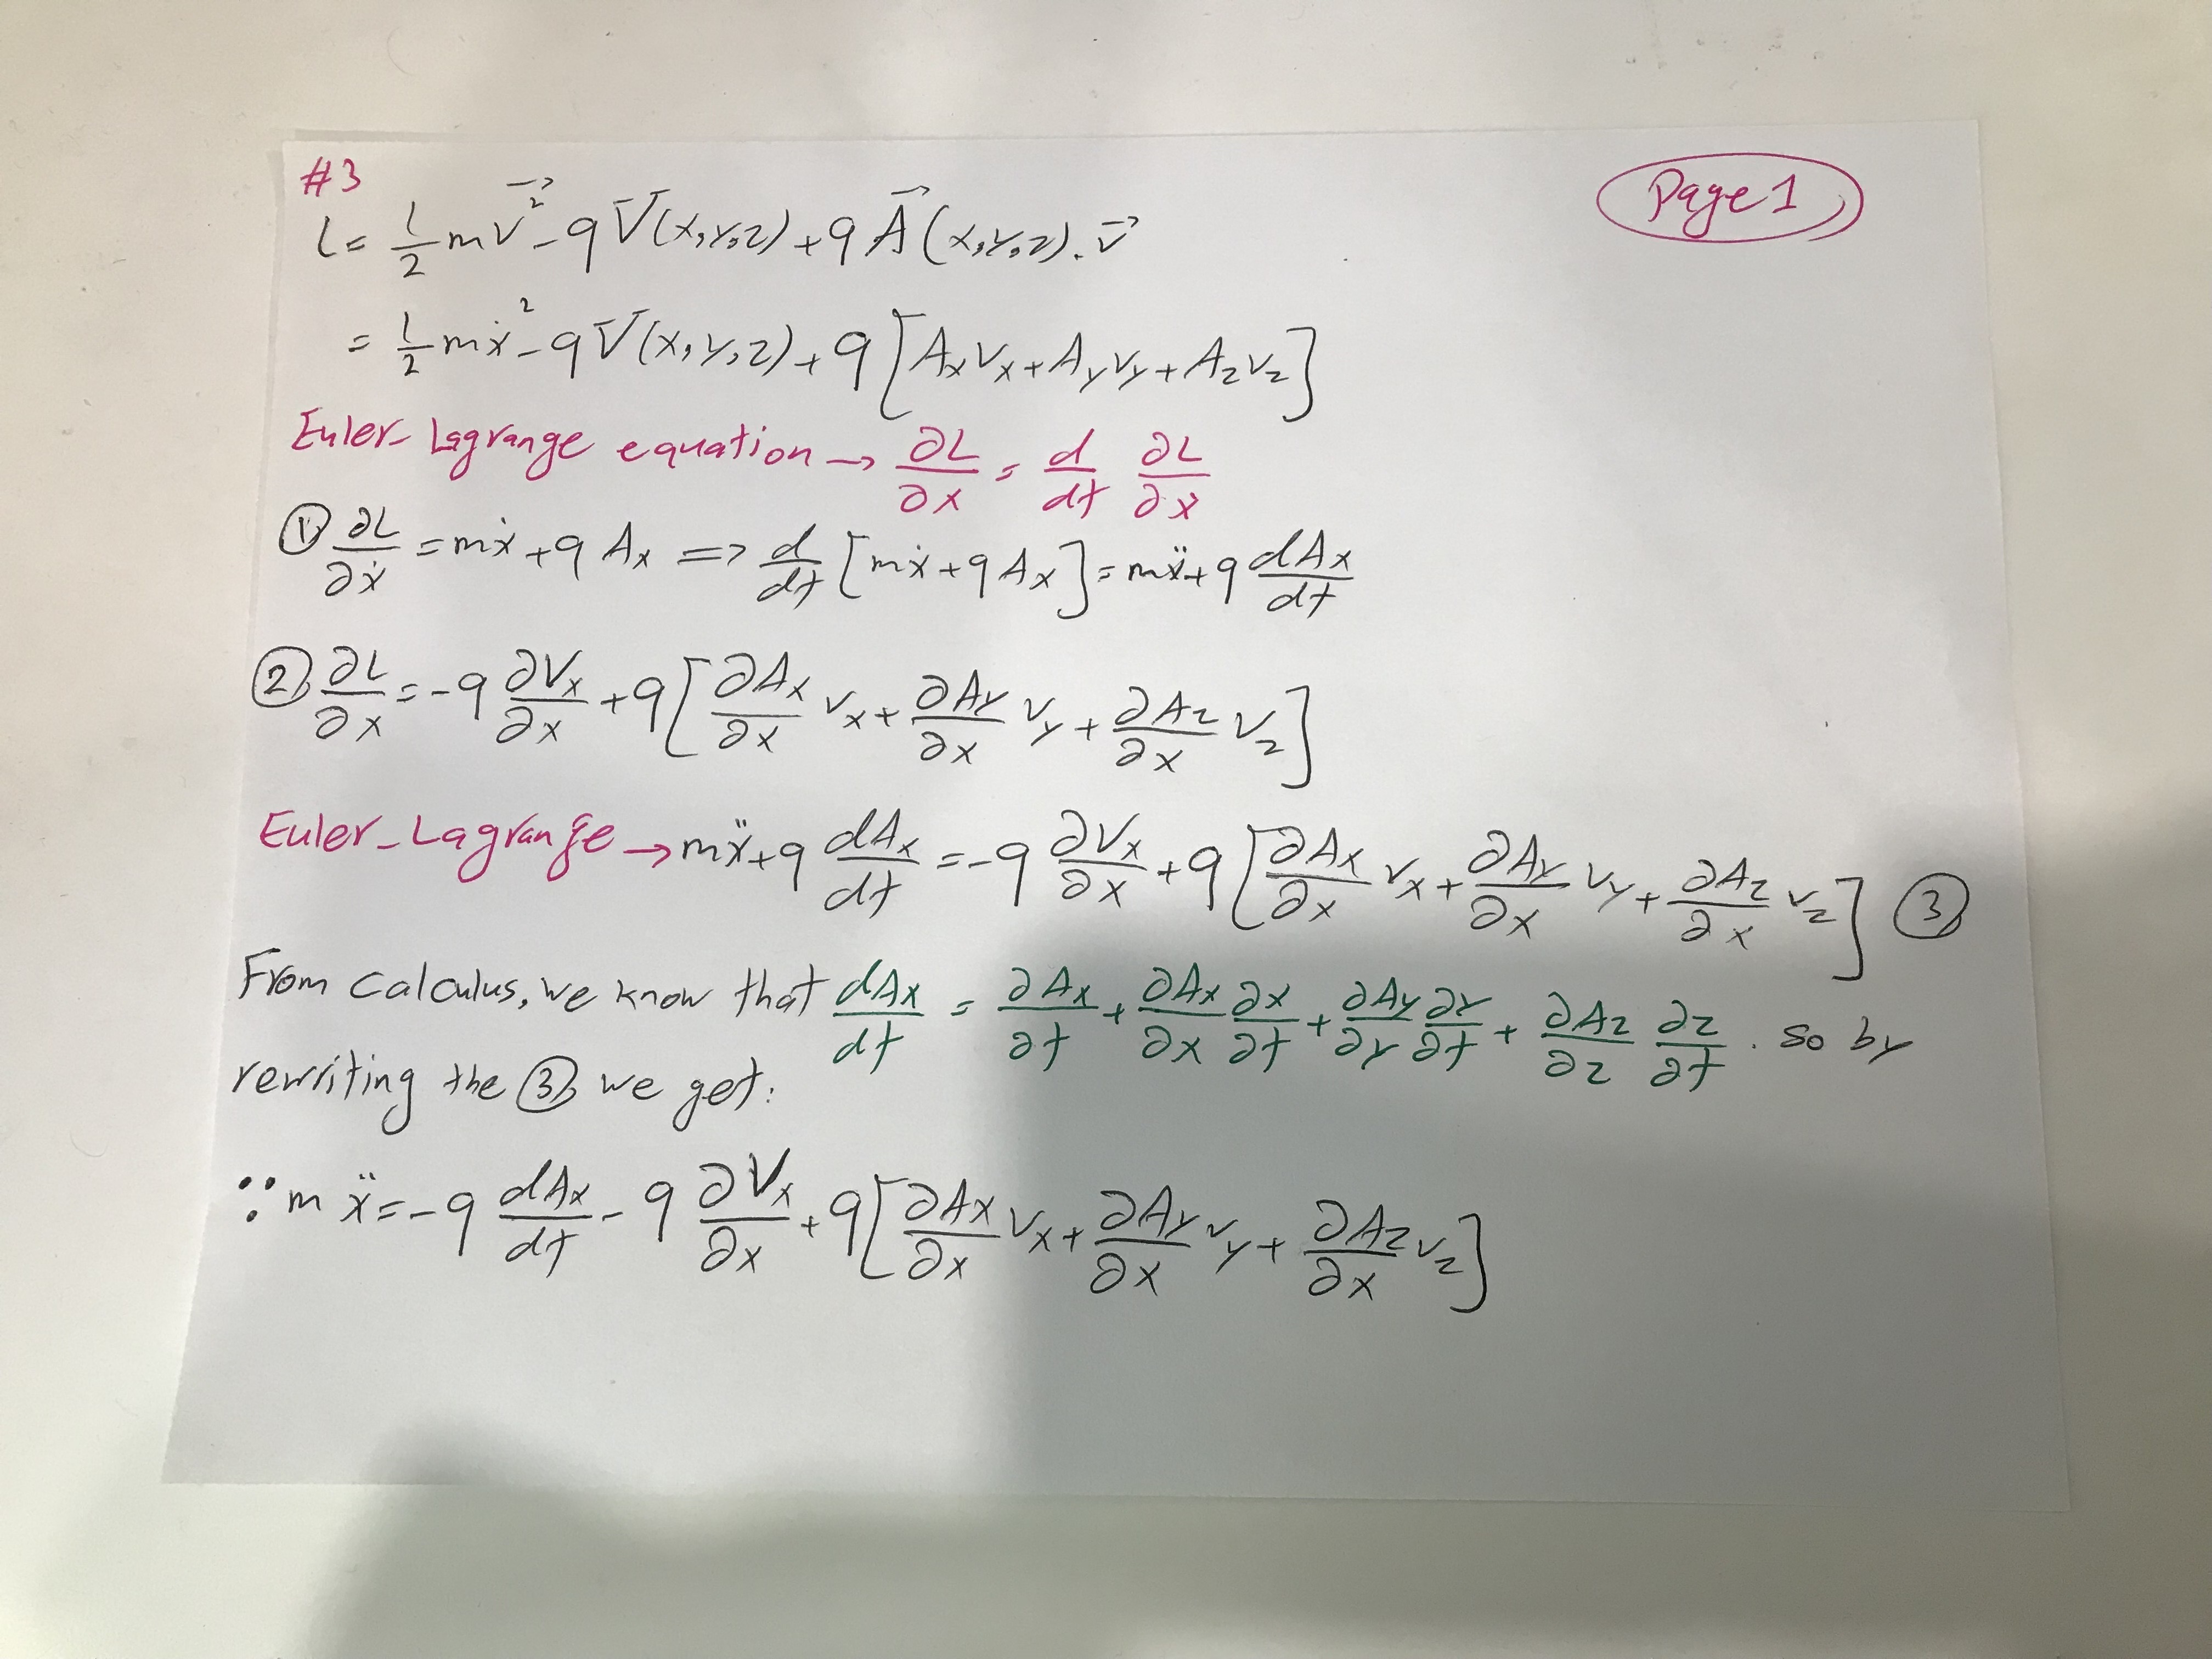 #3
Page 1
L = 1/2 m v⃗² - q V(x,y,z) + q A⃗ (x,y,z) . v⃗
= 1/2 m ẋ² - q V(x,y,z) + q [Ax Vx + Ay Vy + Az Vz]
Euler-Lagrange equation → ∂L/∂x = d/dt ∂L/∂ẋ
① ∂L/∂ẋ = mẋ + q Ax => d/dt [mẋ + q Ax] = mẍ + q dAx/dt
② ∂L/∂x = -q ∂Vx/∂x + q [∂Ax/∂x Vx + ∂Ay/∂x Vy + ∂Az/∂x Vz]
Euler-Lagrange → mẍ + q dAx/dt = -q ∂Vx/∂x + q [∂Ax/∂x Vx + ∂Ay/∂x Vy + ∂Az/∂x Vz] ③
From Calculus, we know that dAx/dt = ∂Ax/∂t + ∂Ax/∂x ∂x/∂t + ∂Ay/∂y ∂y/∂t + ∂Az/∂z ∂z/∂t . so by
rewriting the ③ we get:
∵ m ẍ = -q dAx/dt - q ∂Vx/∂x + q [∂Ax/∂x Vx + ∂Ay/∂x Vy + ∂Az/∂x Vz]